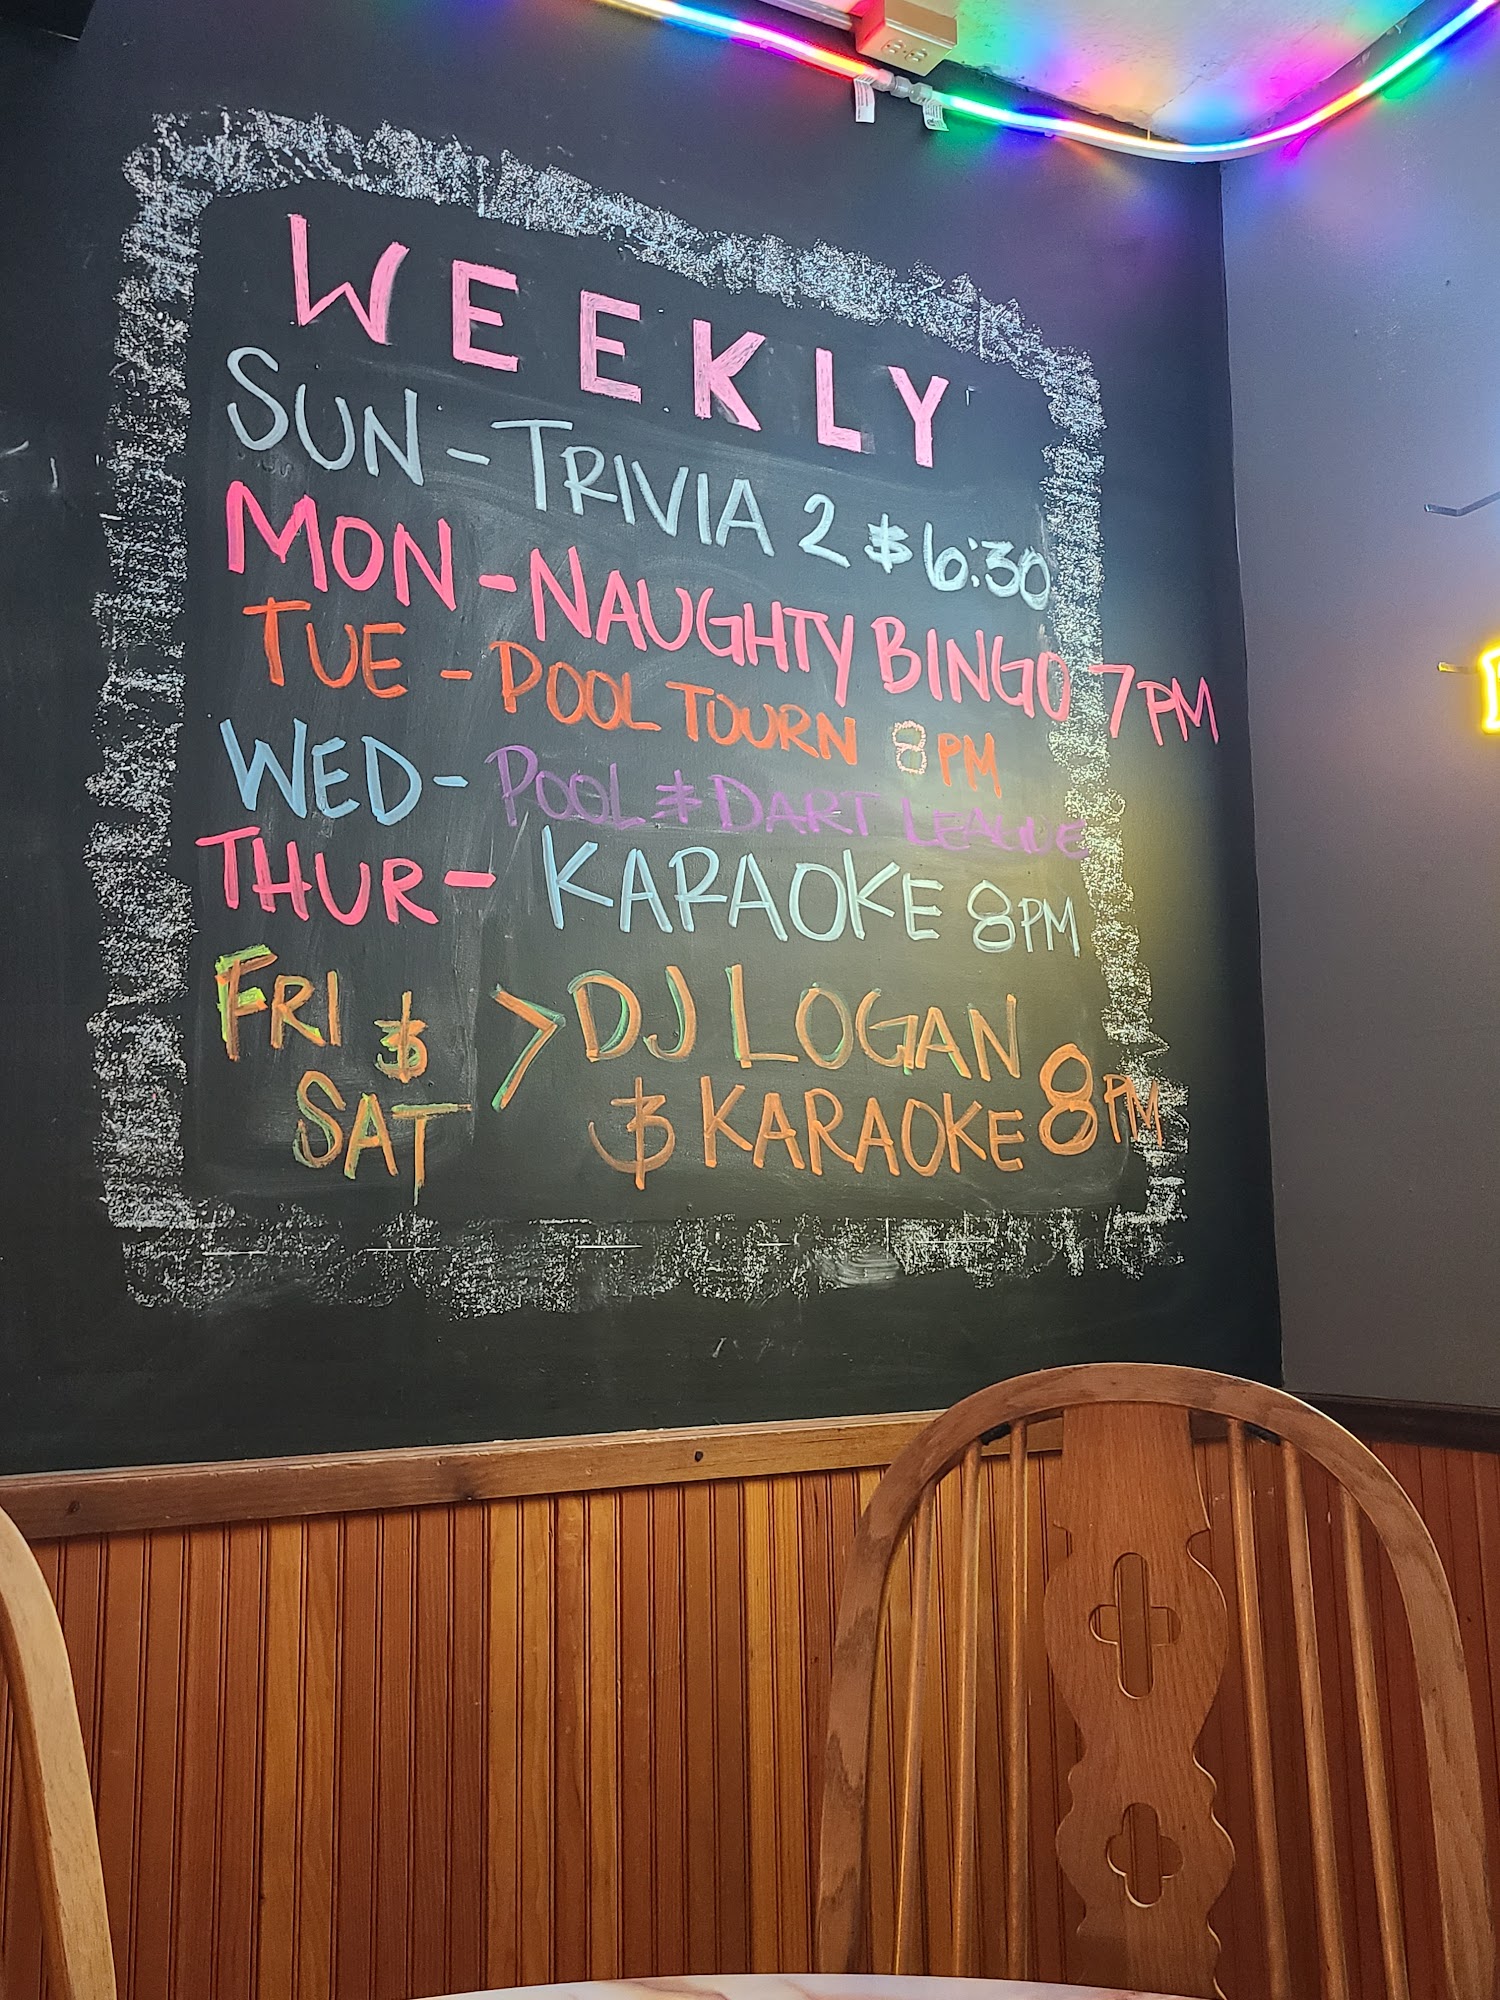 WEEKLY
SUN - TRIVIA 2 & 6:30
MON - NAUGHTY BINGO 7PM
TUE - POOL TOURN 8PM
WED - POOL & DART LEAGUE
THUR - KARAOKE 8PM
FRI & SAT > DJ LOGAN
& KARAOKE 8PM